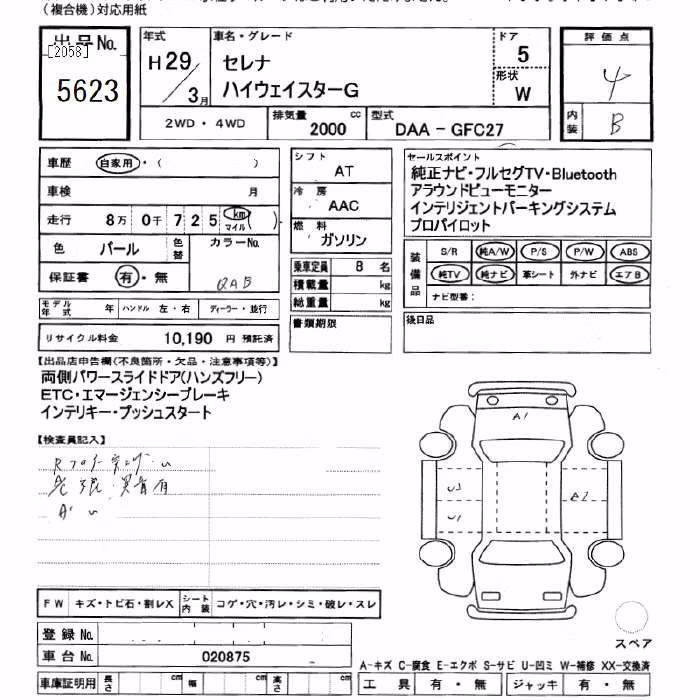 (複合機)対応用紙
出品No.
[2058]
5623
年式
H29/3月
車名・グレード
セレナ
ハイウェイスターG
ドア
5
形状
W
評価点
4
内装
B
2WD・4WD
排気量
2000 cc
型式
DAA-GFC27
車歴 自家用・( )
車検 月
走行 8万 0千 7 2 5 km マイル ( )
色 パール 色替
カラーNo.
QAB
保証書 有・無
モデル年式 年 ハンドル 左・右 ディーラー・並行
リサイクル料金 10,190 円 預託済
シフト
AT
冷房
AAC
燃料
ガソリン
乗車定員 8 名
積載量 kg
総重量 kg
書類期限
セールスポイント
純正ナビ・フルセグTV・Bluetooth
アラウンドビューモニター
インテリジェントパーキングシステム
プロパイロット
装備品
S/R 純A/W P/S P/W ABS
純TV 純ナビ 革シート 外ナビ エアB
ナビ型番:
後日品
【出品店申告欄(不良箇所・欠品・注意事項等)】
両側パワースライドドア(ハンズフリー)
ETC・エマージェンシーブレーキ
インテリキー・プッシュスタート
【検査員記入】
A1
U3
U1
A2
FW キズ・トビ石・割レX シート内装 コゲ・穴・汚レ・シミ・破レ・スレ
登録No.
車台No. 020875
車庫証明用 長さ cm 幅 cm 高さ cm
スペア
A-キズ C-腐食 E-エクボ S-サビ U-凹ミ W-補修 XX-交換済
工具 有・無 ジャッキ 有・無